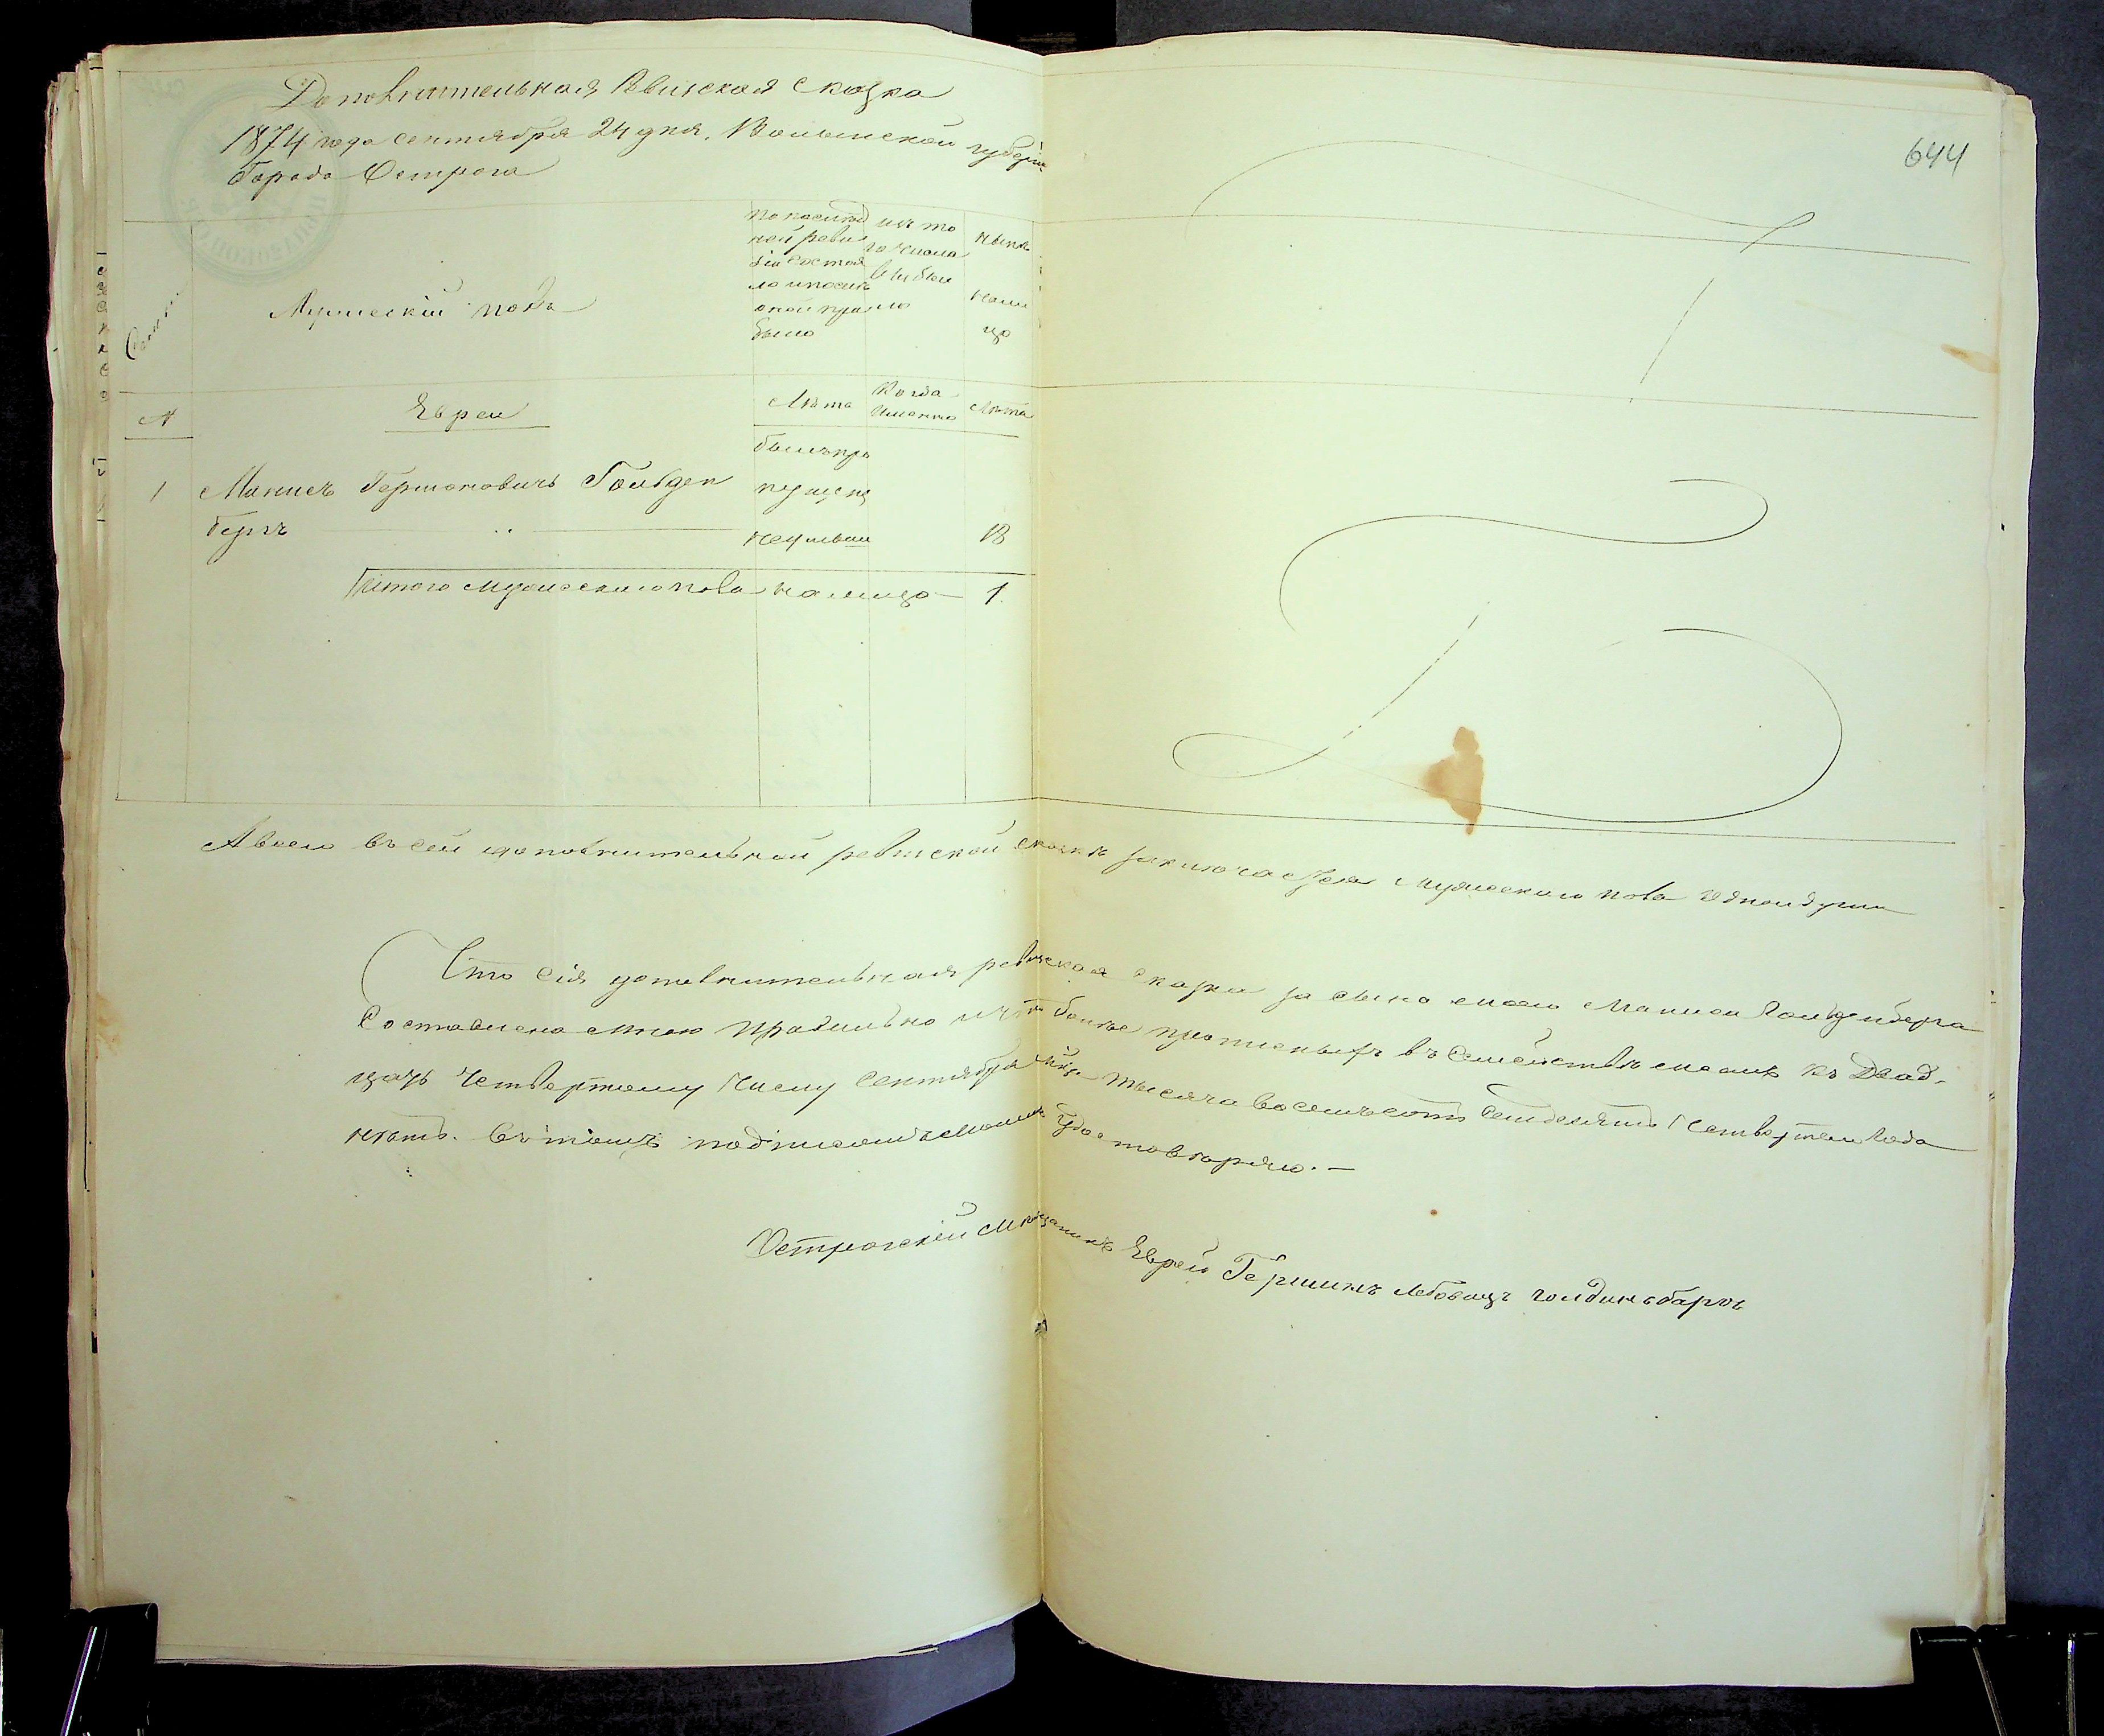 644
Дополнительная Ревизская Сказка
1874 года Сентября 24 дня. Волынской губерніи
Города Острога
Семьи.
Мужескій полъ
По послѣд
ней реви
зіи состоя
ло и послѣ
оной при
было
изъ то
го числа
выбы
ло
Нынѣ
нали
цо
№
Евреи
Лѣта
Когда
именно
Лѣта
1 Манисъ Гершоновичъ Гольден
бергъ
былъ про
пущенъ
18
Итого мужескаго пола на лицо — 1.
А всего въ сей дополнительной ревизской сказкѣ заключается мужескаго пола одна душа
Что сія дополнительная ревизская сказка за сына моего Маниса Гольденберга
составлена мною правильно и что болѣе прописныхъ въ семействѣ моемъ къ двад-
цать четвертому числу Сентября мѣсяца тысяча восемьсотъ семьдесятъ четвертаго года
нѣтъ. Въ томъ подписомъ моимъ удостовѣряю. —
Острогскій мѣщанинъ Еврей Гершинъ Лебовицъ голдинъбаргъ